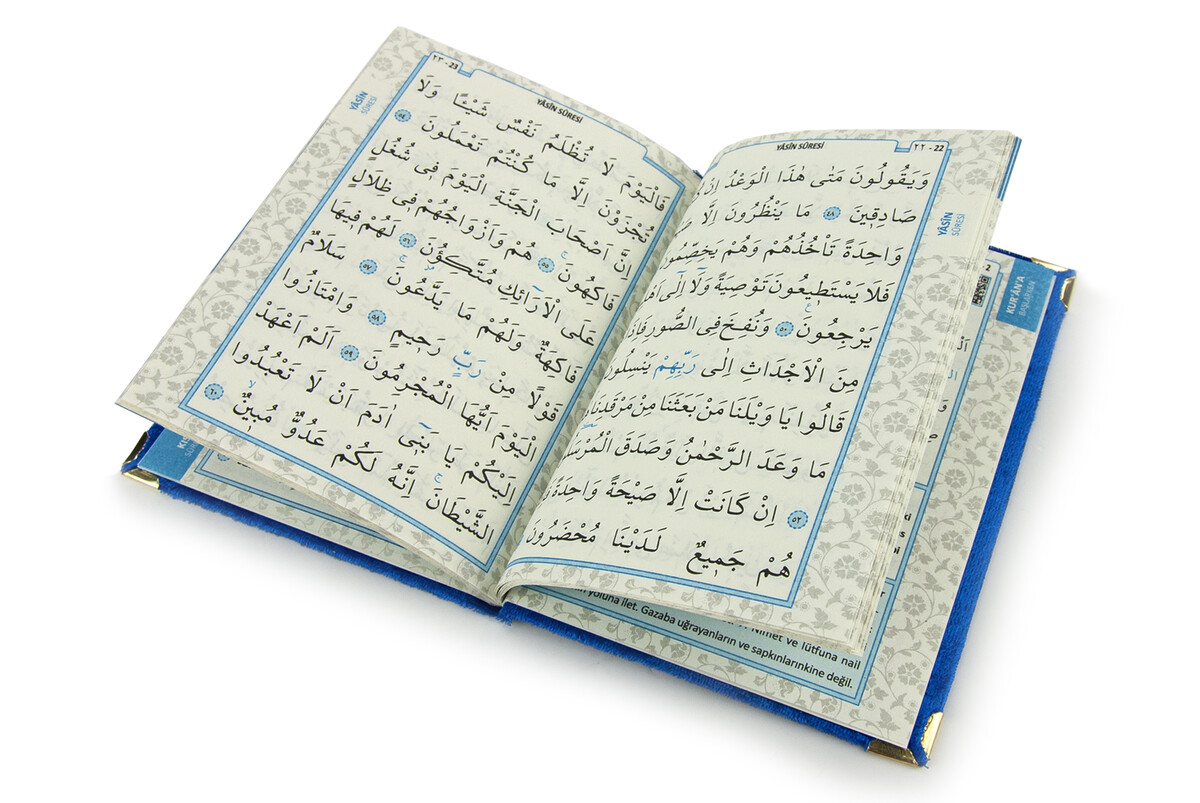 ٢٢ - 22
YÂSÎN SÛRESİ
YÂSÎN
SÛRESİ
وَيَقُولُونَ مَتٰى هٰذَا الْوَعْدُ اِنْ
صَادِقٖينَ ٤٨ مَا يَنْظُرُونَ اِلَّا
وَاحِدَةً تَأْخُذُهُمْ وَهُمْ يَخِصِّمُونَ
فَلَا يَسْتَطٖيعُونَ تَوْصِيَةً وَلَٓا اِلٰٓى
يَرْجِعُونَ ٥٠ وَنُفِخَ فِى الصُّورِ فَاِذَا
مِنَ الْاَجْدَاثِ اِلٰى رَبِّهِمْ يَنْسِلُونَ
قَالُوا يَا وَيْلَنَا مَنْ بَعَثَنَا مِنْ مَرْقَدِنَا
مَا وَعَدَ الرَّحْمٰنُ وَصَدَقَ الْمُرْسَلُونَ
٥٢ اِنْ كَانَتْ اِلَّا صَيْحَةً وَاحِدَةً
هُمْ جَمٖيعٌ لَدَيْنَا مُحْضَرُونَ
٢٣ - 23
YÂSÎN SÛRESİ
YÂSÎN
SÛRESİ
فَالْيَوْمَ لَا تُظْلَمُ نَفْسٌ شَيْـًٔا وَلَا
تُجْزَوْنَ اِلَّا مَا كُنْتُمْ تَعْمَلُونَ ٥٤
اِنَّ اَصْحَابَ الْجَنَّةِ الْيَوْمَ فٖى شُغُلٍ
فَاكِهُونَ ٥٥ هُمْ وَاَزْوَاجُهُمْ فٖى ظِلَالٍ
عَلَى الْاَرَٓائِكِ مُتَّكِؤُنَ ٥٦ لَهُمْ فٖيهَا
فَاكِهَةٌ وَلَهُمْ مَا يَدَّعُونَ ٥٧ سَلَامٌ
قَوْلًا مِنْ رَبٍّ رَحٖيمٍ ٥٨ وَامْتَازُوا
الْيَوْمَ اَيُّهَا الْمُجْرِمُونَ ٥٩ اَلَمْ اَعْهَدْ
اِلَيْكُمْ يَا بَنٖٓى اٰدَمَ اَنْ لَا تَعْبُدُوا
الشَّيْطَانَ اِنَّهُ لَكُمْ عَدُوٌّ مُبٖينٌ ٦٠
2
KUR'ÂN'A
BAŞLARKEN
yoluna ilet. Gazaba uğrayanların ve sapkınlarınkine değil.
Nimet ve lütfuna nail